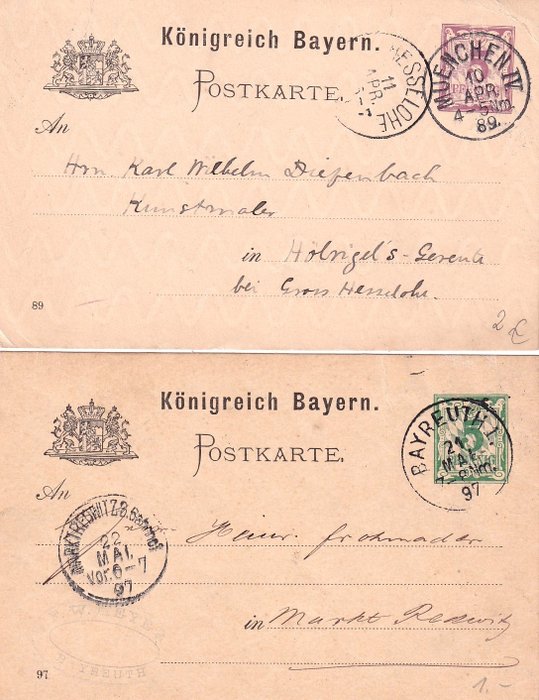 Königreich Bayern.
POSTKARTE.
HESSELOHE
11
APR.
MUENCHEN IV
10
APR.
4-5 Nm
89.
An
Hrn. Karl Wilhelm Diefenbach
Kunstmaler
in Hölrigel's-Gereute
bei Gross Hesselohe.
89
2 €
Königreich Bayern.
POSTKARTE.
BAYREUTH I.
21
MAI.
7-8 Nm.
97
An
MARKTREDWITZ B. Bahnhof
22
MAI.
Vor. 6-7
97
Heinr. Frohmader
in Markt Redwitz
W. MEYER
BAYREUTH
97
1.-